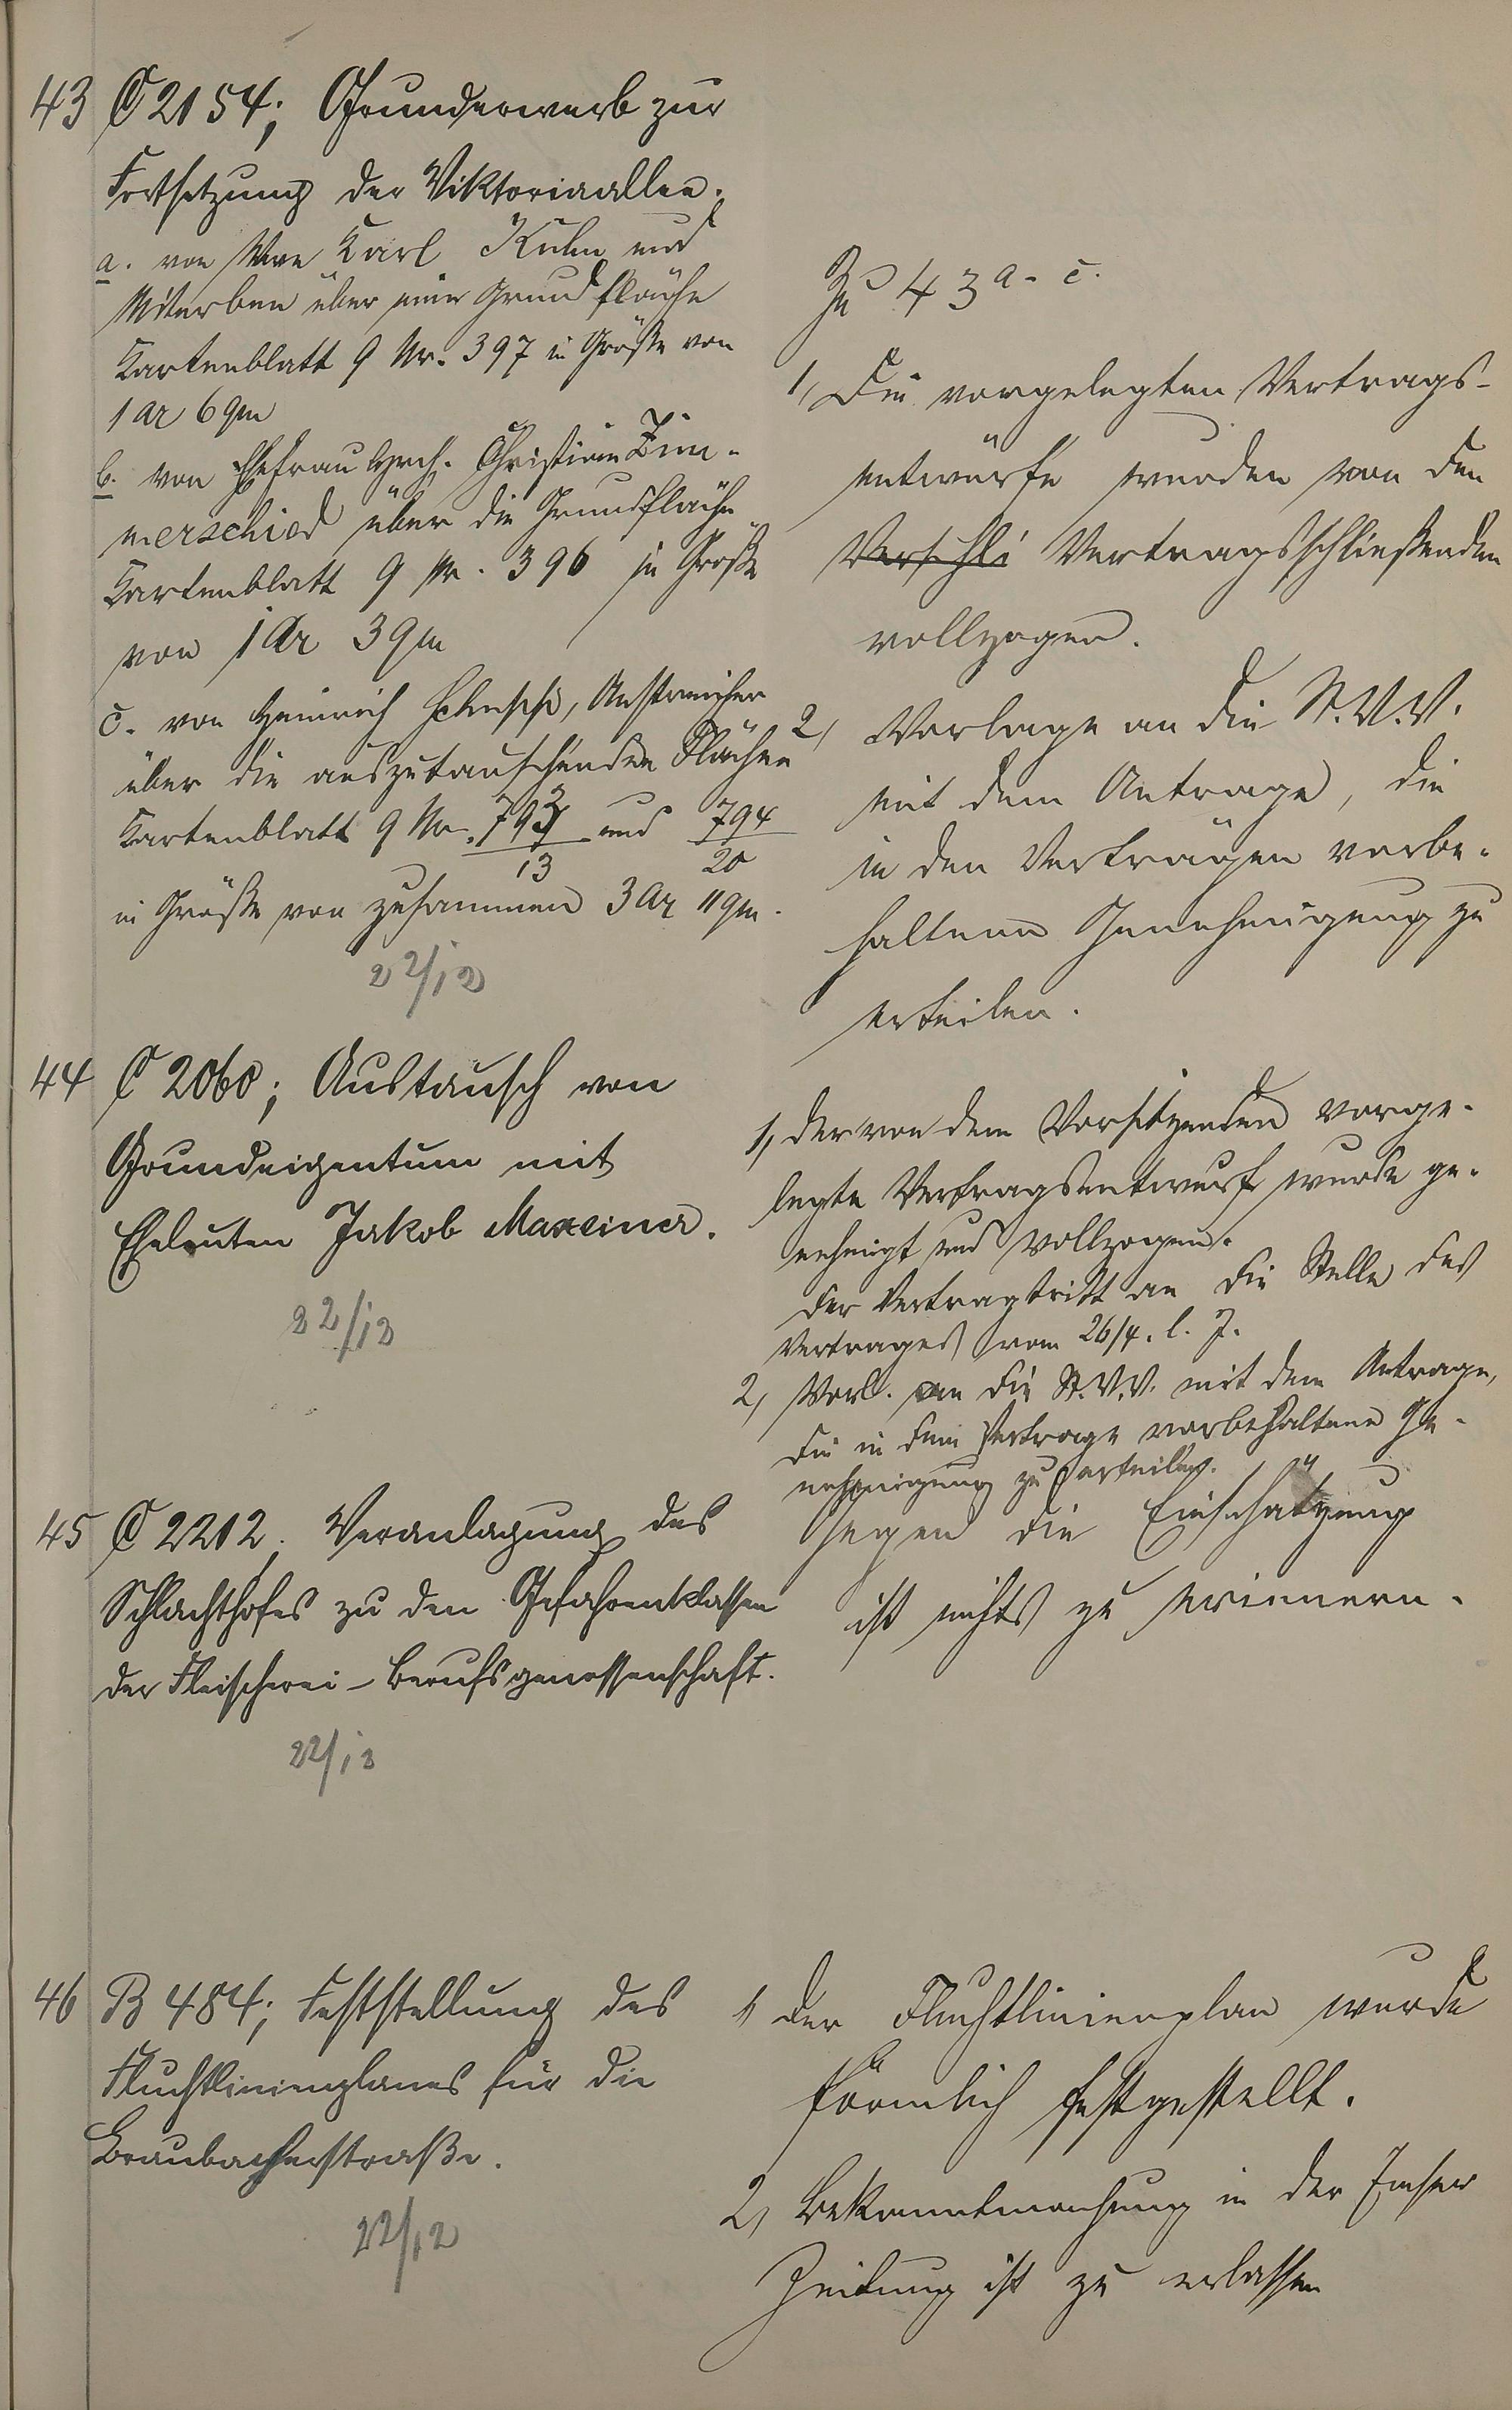 43 C 2154; Grunderwerb zur
Fortsetzung der Viktoriaallee.
a. von Wwe Karl Kuhn und
Miterben über eine Grundfläche
Kartenblatt 9 Nr. 397 in Größe von
1 ar 6 qm
b. von Ehefrau Hrch. Christian Zim-
merschied über die Grundfläche
Kartenblatt 9 Nr. 396 in Größe
von 1 Ar 3 qm
c. von Heinrich Schupp, Anstreicher
über die auszutauschenden Flächen
Kartenblatt 9 Nr. 793/13 und 794/20
in Größe von zusammen 3 Ar 11 qm.
22/12
Zu 43 a - c.
1, Die vorgelegten Vertrags-
entwürfe wurden von den
Verschli Vertragsschließenden
vollzogen.
2, Vorlage an die St.V.V.
mit dem Antrage, die
in den Verträgen vorbe-
haltene Genehmigung zu
erteilen.
44 C 2060; Austausch von
Grundeigentum mit
Eheleuten Jakob Maxeiner.
22/12
1, Der von dem Vorsitzenden vorge-
legte Vertragsentwurf wurde ge-
nehmigt und vollzogen.
Der Vertrag tritt an die Stelle des
Vertrages vom 26/4. l. J.
2, Vorl. an die St.V.V. mit dem Antrage,
die in dem Vertrage vorbehaltene Ge-
nehmigung zu erteilen.
45 C 2212. Veranlagung des
Schlachthofes zu den Gefahrenklassen
der Fleischerei-Berufsgenossenschaft.
22/12
Gegen die Einschätzung
ist nichts zu erinnern.
46 B 484; Feststellung des
Fluchtlinienplanes für die
Braubacherstraße.
22/12
1 Der Fluchtlinienplan wurde
förmlich festgestellt.
2, Bekanntmachung in der Emser
Zeitung ist zu erlassen